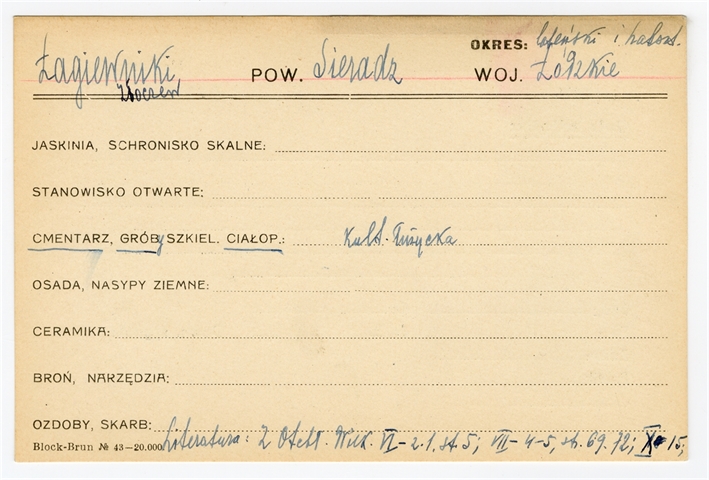 OKRES: lateński i halszt.
Łagiewniki, POW. Sieradz WOJ. Łódzkie
Złoczew
JASKINIA, SCHRONISKO SKALNE:
STANOWISKO OTWARTE:
CMENTARZ, GRÓBy SZKIEL. CIAŁOP.: Kult. Łużycka
OSADA, NASYPY ZIEMNE:
CERAMIKA:
BROŃ, NARZĘDZIA:
OZDOBY, SKARB:
Literatura: Z Otchł. Wiek. VI-2.1. st. 5; VII-4-5, st. 69. 72; 15;
Block-Brun № 43—20.000